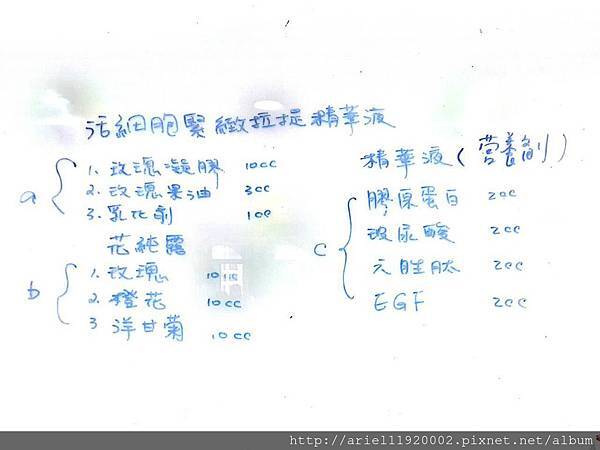 活細胞緊緻拉提精華液
a
1. 玫瑰凝膠 10cc
2. 玫瑰果油 3cc
3. 乳化劑 1cc
花純露
b
1. 玫瑰 10cc
2. 橙花 10cc
3 洋甘菊 10cc
精華液(營養劑)
c
膠原蛋白 2cc
玻尿酸 2cc
六胜肽 2cc
EGF 2cc
http://ariel11920002.pixnet.net/album